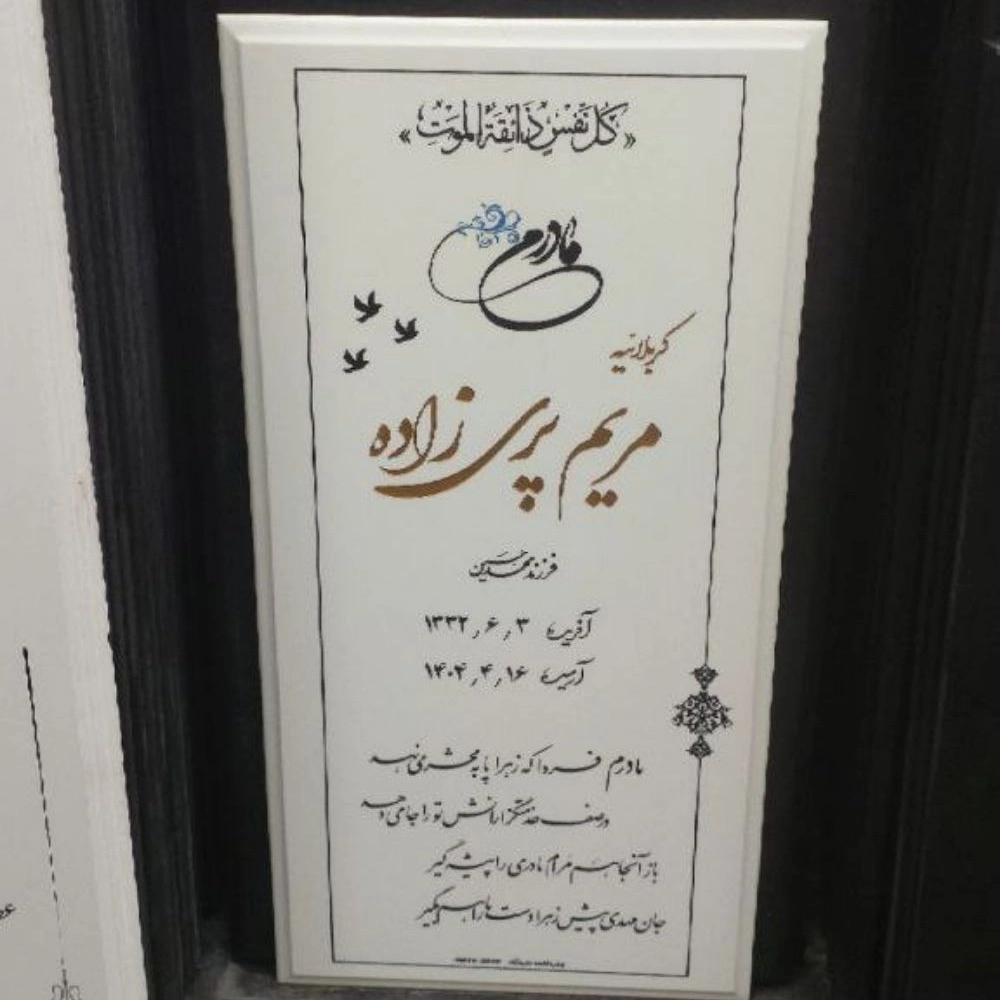 «كُلُّ نَفْسٍ ذَائِقَةُ الْمَوْتِ»
مادرم
کربلائیه
مریم پری زاده
فرزند محمدحسین
آفرینش ۱۳۳۲٫۶٫۳
آرمش ۱۴۰۴٫۴٫۱۶
مادرم فردا که زهرا پا به محشر می نهد
در صف خدمتگزارانش تو را جا می دهد
باز آنجا هم مرام مادری را پیشه گیر
جان مهدی پیش زهرا دست ما را هم بگیر